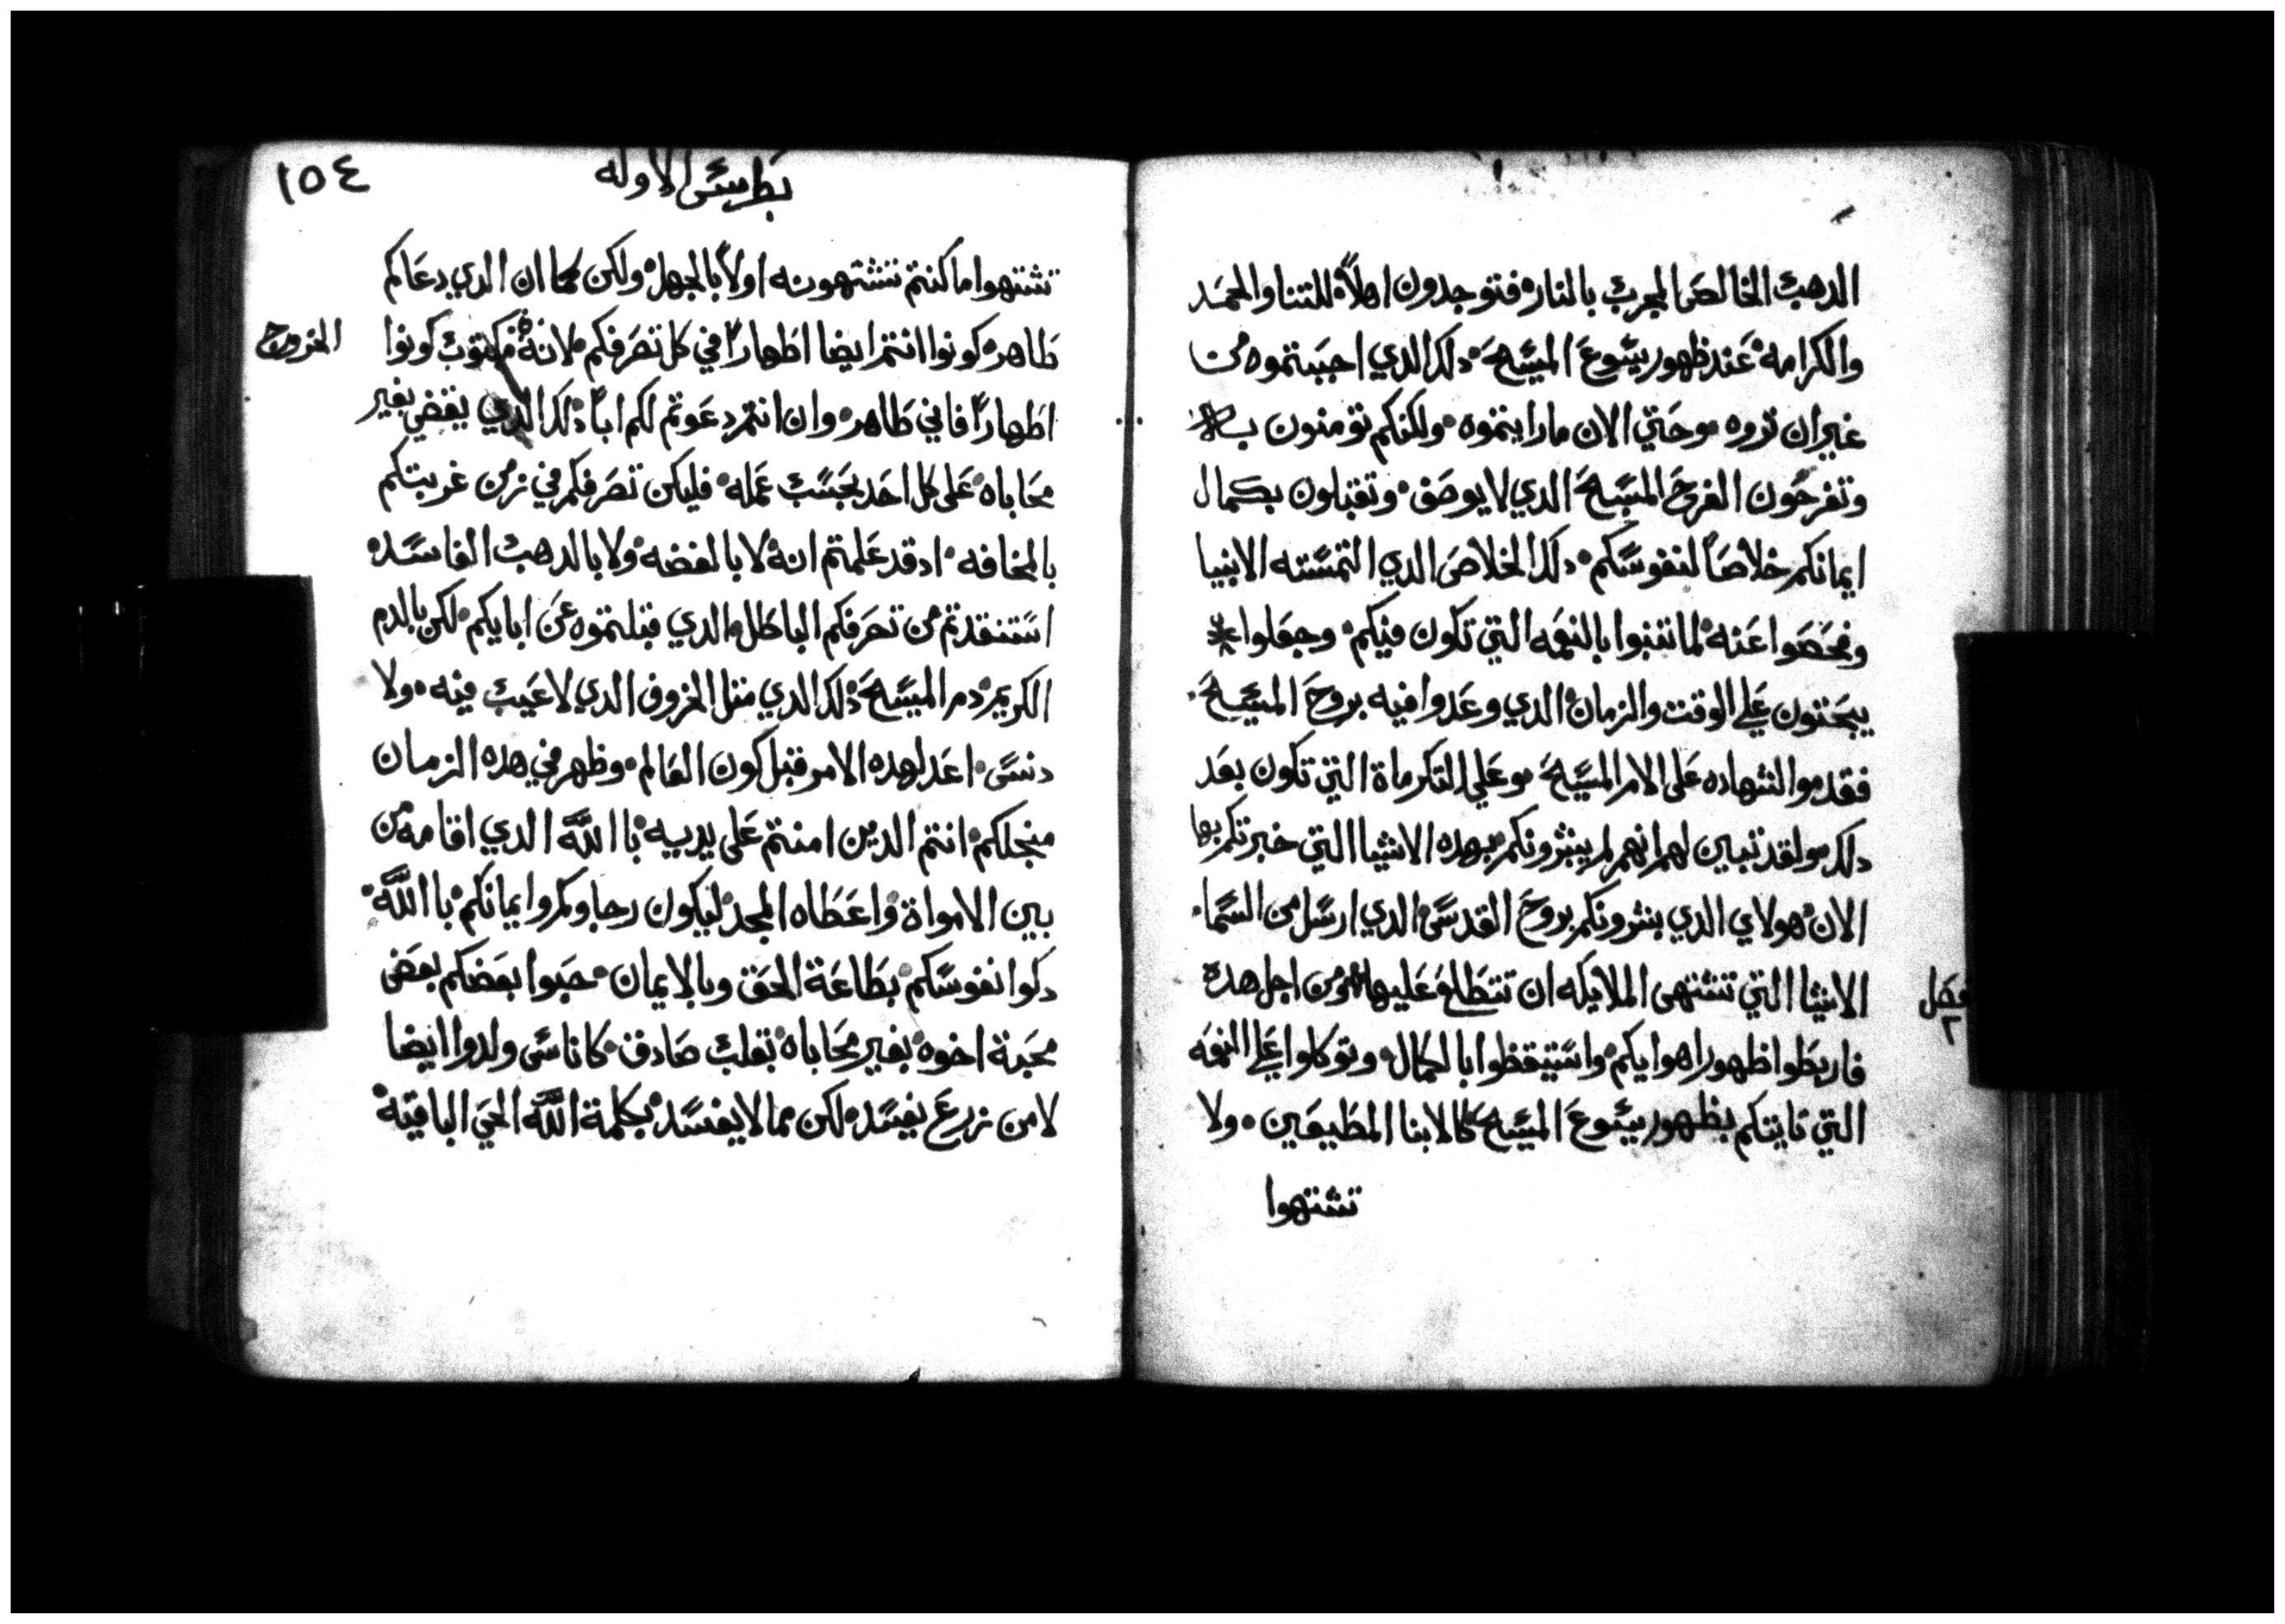 الدهب الخالص المجرب بالنار فتوجدون اهلاً للتنا والمجد
والكرامه عند ظهور يسوع المسيح دلك الدي احببتموه من
غير ان تروه وحتي الان ما رايتموه ولكنكم تومنون به
وتفرحون الفرح المسيح الدي لا يوصف وتقبلون بكمال
ايمانكم خلاصاً لنفوسكم دلك الخلاص الدي التمسته الانبيا
وفحصوا عنه لما تنبوا بالنعمه التي تكون فيكم وجعلوا
يبحتون علي الوقت والزمان الدي وعدوا فيه بروح المسيح
فقدموا الشهاده على الامر المسيح وعلي التكرماة التي تكون بعد
دلك ولقد تبين لهم انهم لم يبشرونكم بهده الاشيا التي خبرتكم بها
الان هولاي الدي بشرونكم بروح القدس الدي ارسل من السما
فصل ٢
الاشيا التي تشتهى الملايكه ان تتطلع عليها من اجل هده
فاربطوا ظهور اهوايكم واستيقظوا بالكمال وتوكلوا علي النعمه
التي تاتيكم بظهور يسوع المسيح كالابنا المطيعين ولا
تشتهوا
بطرس الاوله
١٥٤
تشتهوا ما كنتم تشتهونه اولاً بالجهل ولكن كما ان الدي دعاكم
طاهر كونوا انتم ايضا اطهاراً في كل تصرفكم لانه مكتوب كونوا
الخروج
اطهاراً فاني طاهر وان انتم دعوتم لكم اباً دلك الدي يقضي بغير
محاباه على كل احد بحسب عمله فليكن تصرفكم في زمن غربتكم
بالمخافه ادقد علمتم انه لا بالفضه ولا بالدهب الفاسده
استنقدتم من تصرفكم الباطل الدي قبلتموه عن ابايكم لكن بالدم
الكريم دم المسيح دلك الدي متل الخروف الدي لا عيب فيه ولا
دنس اعد لهده الامر قبل كون العالم وظهر في هده الزمان
منجلكم انتم الدين امنتم على يديه باالله الدي اقامه من
بين الامواة واعطاه المجد ليكون رجاوكم وايمانكم باالله
دكوا نفوسكم بطاعة الحق وبالايمان حبوا بعضكم بعض
محبة اخوه بغير محاباه بقلب صادق كاناس ولدوا ايضا
لا من زرع يفسد لكن مما لا يفسد بكلمة الله الحي الباقية